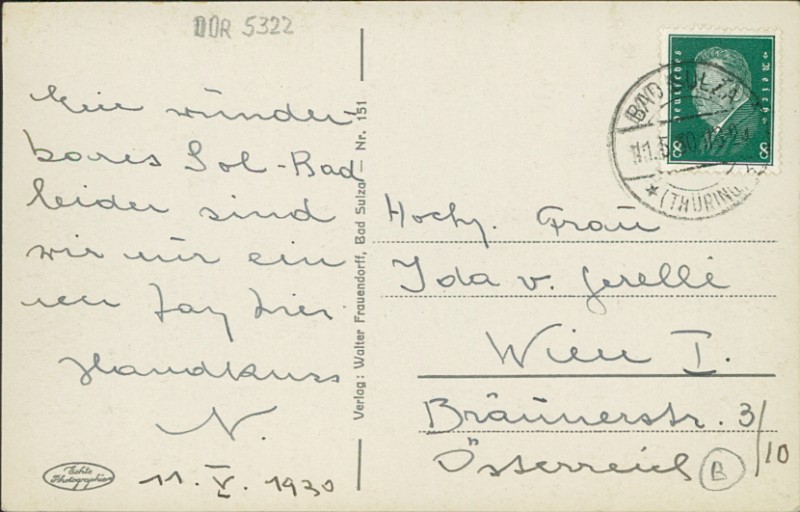 DDR 5322
Ein wunder-
bares Sol-Bad
leider sind
wir nur ein
nen Tag hier
Handkuss
N.
11. V. 1930
Echte
Photographie
Verlag: Walter Frauendorff, Bad Sulza – Nr. 151
Deutsches Reich
8 8
BAD SULZA
11.5.30.
(THÜRING.)
Hochg. Frau
Ida v. Gerelli
Wien I.
Bräunerstr. 3/10
Österreich
B